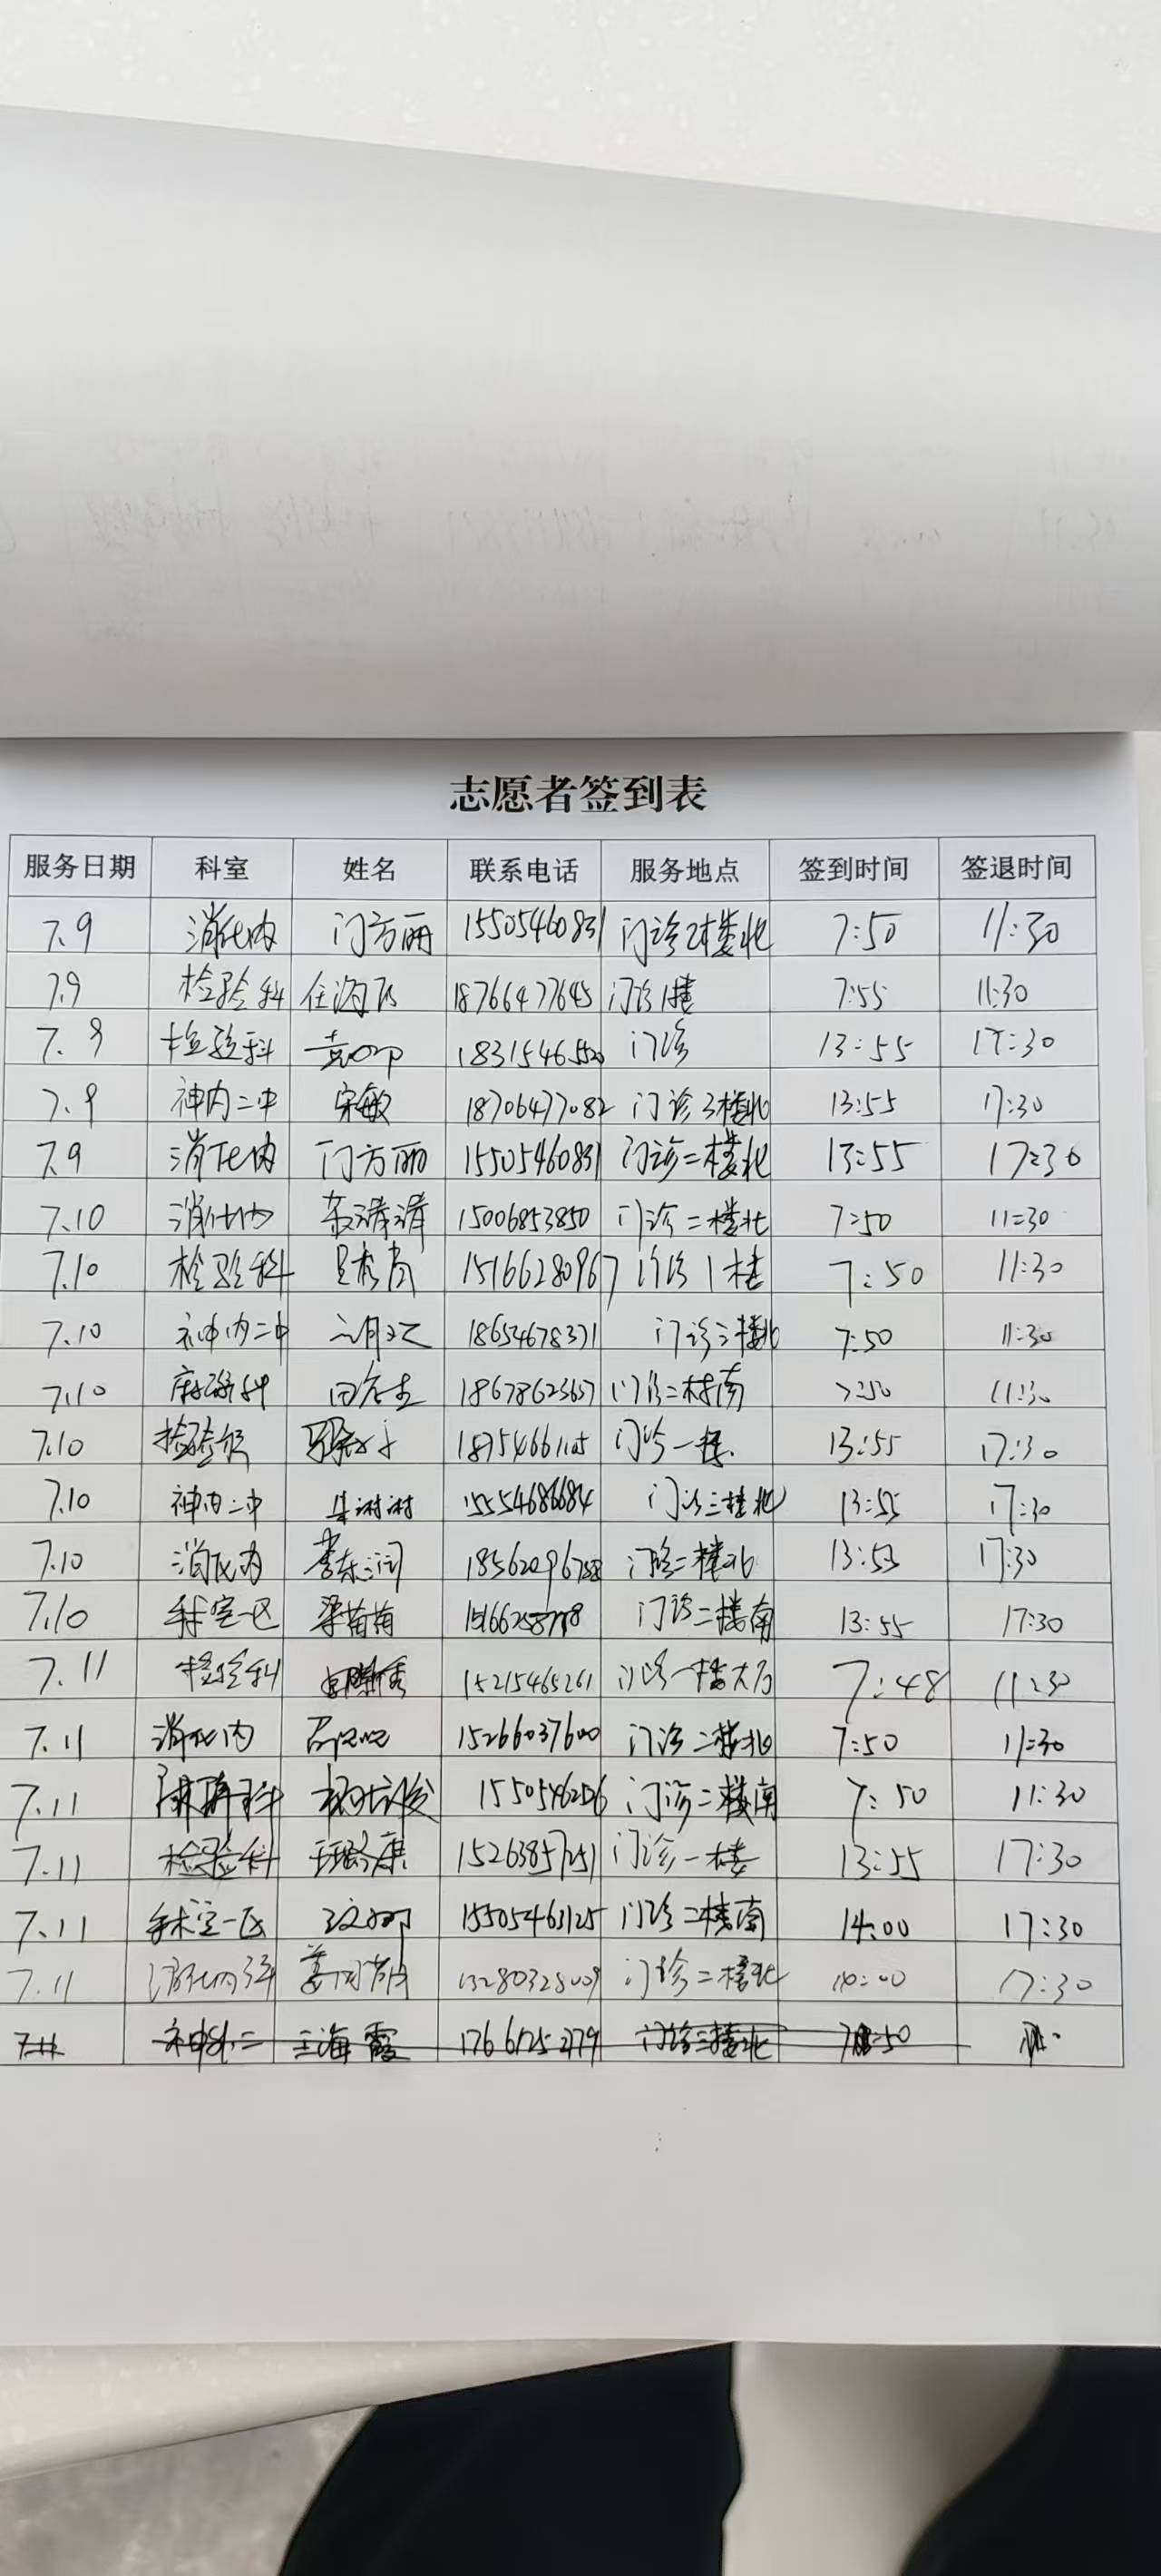 志愿者签到表
服务日期 科室 姓名 联系电话 服务地点 签到时间 签退时间
7.9 消化内 门方丽 15505460831 门诊2楼北 7:50 11:30
7.9 检验科 18766477645 门诊1楼 7:55 11:30
7.9 检验科 门诊 13:55 17:30
7.9 神内二中 宋敏 18706477082 门诊3楼北 13:55 17:30
7.9 消化内 门方丽 15505460831 门诊二楼北 13:55 17:30
7.10 消化内 15006853850 门诊二楼北 7:50 11:30
7.10 检验科 15166280967 门诊1楼 7:50 11:30
7.10 神内二中 18654678371 门诊三楼北 7:50 11:30
7.10 麻醉科 18678623637 门诊二楼南 7:50 11:30
7.10 检验科 门诊一楼 13:55 17:30
7.10 神内二中 15554686684 门诊三楼北 13:55 17:30
7.10 消化内 李东润 门诊二楼北 13:55 17:30
7.10 手术室一区 梁苗苗 门诊二楼南 13:55 17:30
7.11 检验科 15215465261 门诊一楼大厅 7:48 11:30
7.11 消化内 15266037600 门诊二楼北 7:50 11:30
7.11 麻醉科 1550546256 门诊二楼南 7:50 11:30
7.11 检验科 15263857251 门诊一楼 13:55 17:30
7.11 手术室一区 15505461125 门诊二楼南 14:00 17:30
7.11 消化内 13280328009 门诊二楼北 17:30
7.11 神外二 王海霞 门诊三楼北